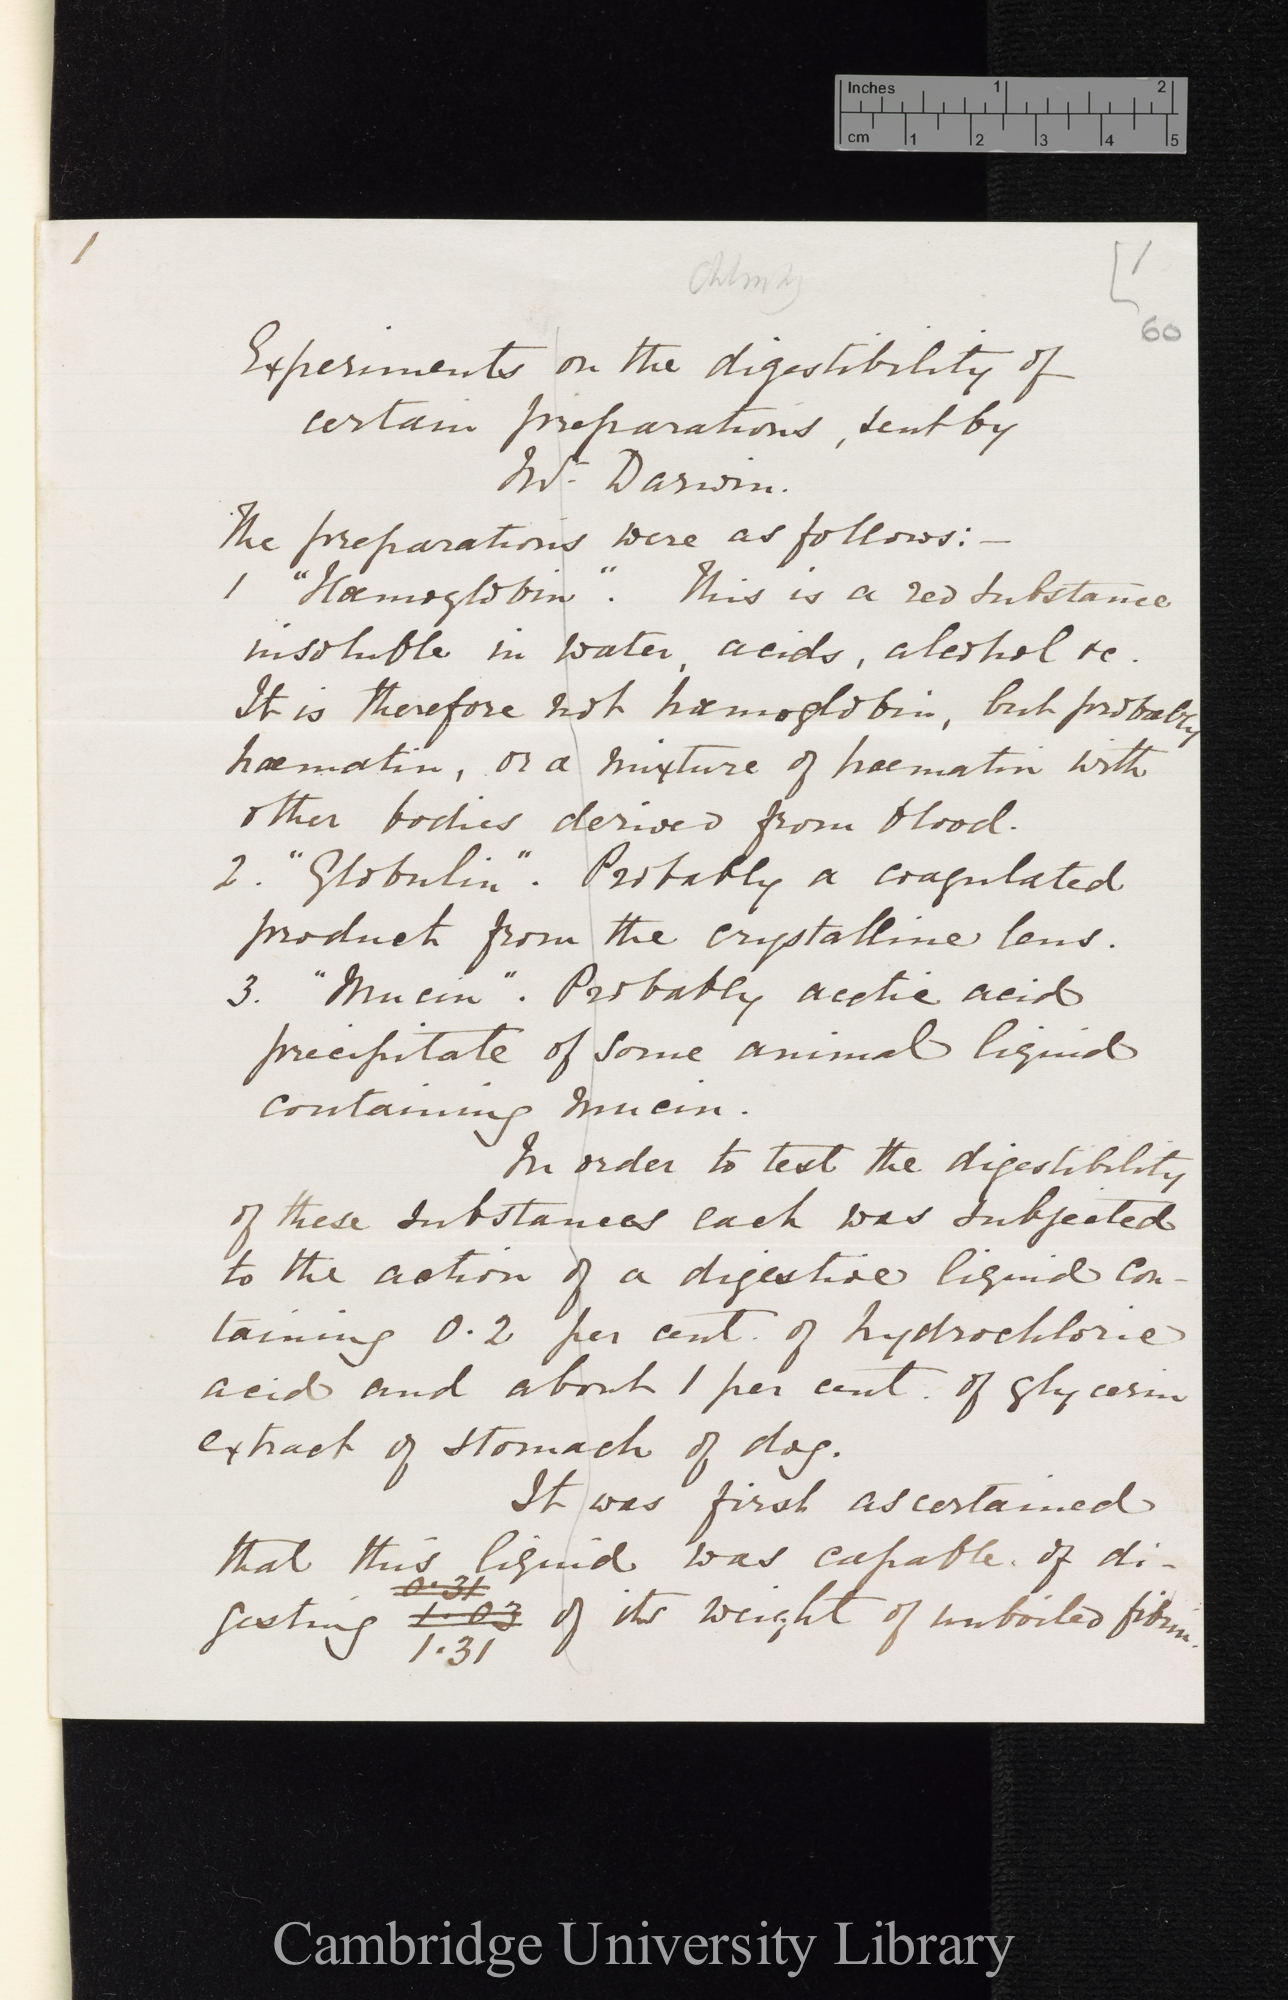 Inches 1 2
cm 1 2 3 4 5
1
1
60
Experiments on the digestibility of
certain preparations, sent by
Mr. Darwin.
The preparations were as follows:-
1 "Hæmoglobin". This is a red substance
insoluble in water, acids, alcohol &c.
It is therefore not hæmoglobin, but probably
hæmatin, or a mixture of hæmatin with
other bodies derived from blood.
2. "Globulin". Probably a coagulated
product from the crystalline lens.
3. "Mucin". Probably acetic acid
precipitate of some animal liquid
containing mucin.
In order to test the digestibility
of these substances each was subjected
to the action of a digestive liquid con-
taining 0.2 per cent. of hydrochloric
acid and about 1 per cent. of glycerin
extract of stomach of dog.
It was first ascertained
that this liquid was capable of di-
0.31
gesting 1.03 of its weight of unboiled fibrin.
1.31
Cambridge University Library